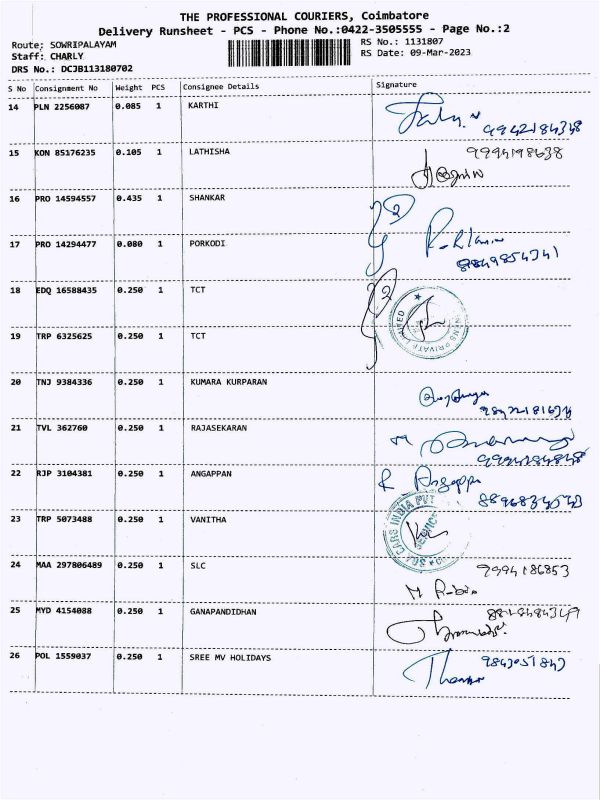 THE PROFESSIONAL COURIERS, Coimbatore
Delivery Runsheet - PCS - Phone No.:0422-3505555 - Page No.:2
Route; SOWRIPALAYAM
RS No.: 1131807
Staff: CHARLY
RS Date: 09-Mar-2023
DRS No.: DCJB113180702
S No Consignment No Weight PCS Consignee Details Signature
14 PLN 2256087 0.085 1 KARTHI
15 KON 85176235 0.105 1 LATHISHA 9994198638
16 PRO 14594557 0.435 1 SHANKAR
17 PRO 14294477 0.080 1 PORKODI
18 EDQ 16588435 0.250 1 TCT
19 TRP 6325625 0.250 1 TCT
20 TNJ 9384336 0.250 1 KUMARA KURPARAN
21 TVL 362760 0.250 1 RAJASEKARAN
22 RJP 3104381 0.250 1 ANGAPPAN
23 TRP 5073488 0.250 1 VANITHA
CARS INDIA PVT
SERVICE
24 MAA 297806489 0.250 1 SLC 9994186853
25 MYD 4154088 0.250 1 GANAPANDIDHAN
26 POL 1559037 0.250 1 SREE MV HOLIDAYS